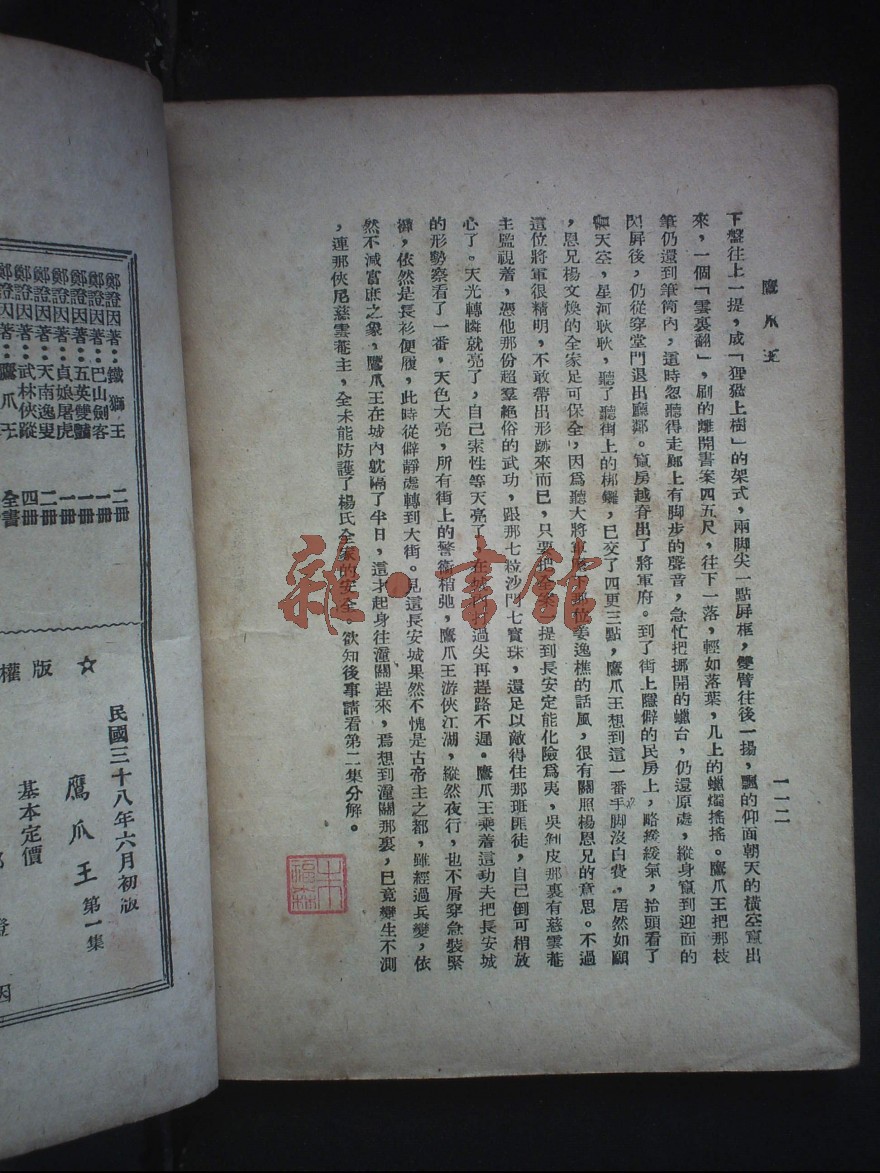 鷹爪王
一一二
下盤往上一提，成「狸貓上樹」的架式，兩脚尖一點屏框，雙臂往後一揚，飄的仰面朝天的橫空竄出
來，一個「雲裏翻」，刷的離開書案四五尺，往下一落，輕如落葉，几上的蠟燭搖搖。鷹爪王把那枝
筆仍還到筆筒內，這時忽聽得走廊上有脚步的聲音，急忙把挪開的蠟台，仍還原處，縱身竄到迎面的
閃屏後，仍從穿堂門退出廳鄰。竄房越脊出了將軍府。到了街上隱僻的民房上，略緩緩氣，抬頭看了
天空，星河耿耿，聽了聽街上的梆鑼，已交了四更三點，鷹爪王想到這一番手脚沒白費，居然如願
，恩兄楊文煥的全家足可保全，因爲聽大將軍麾下那位姜逸樵的話風，很有關照楊恩兄的意思。不過
這位將軍很精明，不敢帶出形跡來而已，只要把全案提到長安定能化險爲夷，吳剝皮那裏有慈雲菴
主監視着，憑他那份超羣絕俗的武功，跟那七粒沙門七寶珠，還足以敵得住那班匪徒，自己倒可稍放
心了。天光轉瞬就亮了，自己索性等天亮了，在城內打過尖再趕路不遲。鷹爪王乘着這功夫把長安城
的形勢察看了一番，天色大亮，所有街上的警衛稍弛，鷹爪王游俠江湖，縱然夜行，也不屑穿急裝緊
褲，依然是長衫便履，此時從僻靜處轉到大街。見這長安城果然不愧是古帝主之都，雖經過兵變，依
然不減富庶之象，鷹爪王在城內躭隔了半日，這才起身往潼關趕來，焉想到潼關那裏，已竟變生不測
，連那俠尼慈雲菴主，全未能防護了楊氏全家的安全。欲知後事請看第二集分解。
鄭證因著：鐵獅王 二冊
鄭證因著：巴山劍客 一冊
鄭證因著：五英雙豔 一冊
鄭證因著：貞娘屠虎 一冊
鄭證因著：天南逸叟 二冊
鄭證因著：武林俠蹤 四冊
鄭證因著：鷹爪王 全書
版權
民國三十八年六月初版
鷹爪王 第一集
基本定價
證因
雜·書館